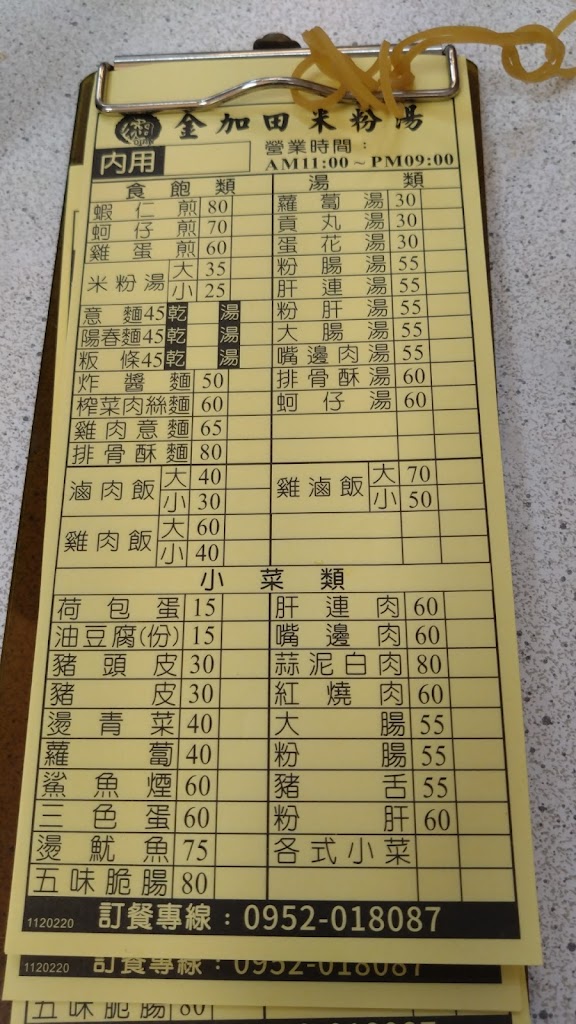 金加田米粉湯
內用
營業時間：
AM11:00～PM09:00
食飽類
蝦仁煎 80
蚵仔煎 70
雞蛋煎 60
米粉湯 大 35
小 25
意麵45 乾 湯
陽春麵45 乾 湯
粄條45 乾 湯
炸醬麵 50
榨菜肉絲麵 60
雞肉意麵 65
排骨酥麵 80
滷肉飯 大 40
小 30
雞肉飯 大 60
小 40
湯類
蘿蔔湯 30
貢丸湯 30
蛋花湯 30
粉腸湯 55
肝連湯 55
粉肝湯 55
大腸湯 55
嘴邊肉湯 55
排骨酥湯 60
蚵仔湯 60
雞滷飯 大 70
小 50
小菜類
荷包蛋 15
油豆腐(份) 15
豬頭皮 30
豬皮 30
燙青菜 40
蘿蔔 40
鯊魚煙 60
三色蛋 60
燙魷魚 75
五味脆腸 80
肝連肉 60
嘴邊肉 60
蒜泥白肉 80
紅燒肉 60
大腸 55
粉腸 55
豬舌 55
粉肝 60
各式小菜
1120220 訂餐專線：0952-018087
1120220 訂餐專線：0952-018087
五味脆腸 80